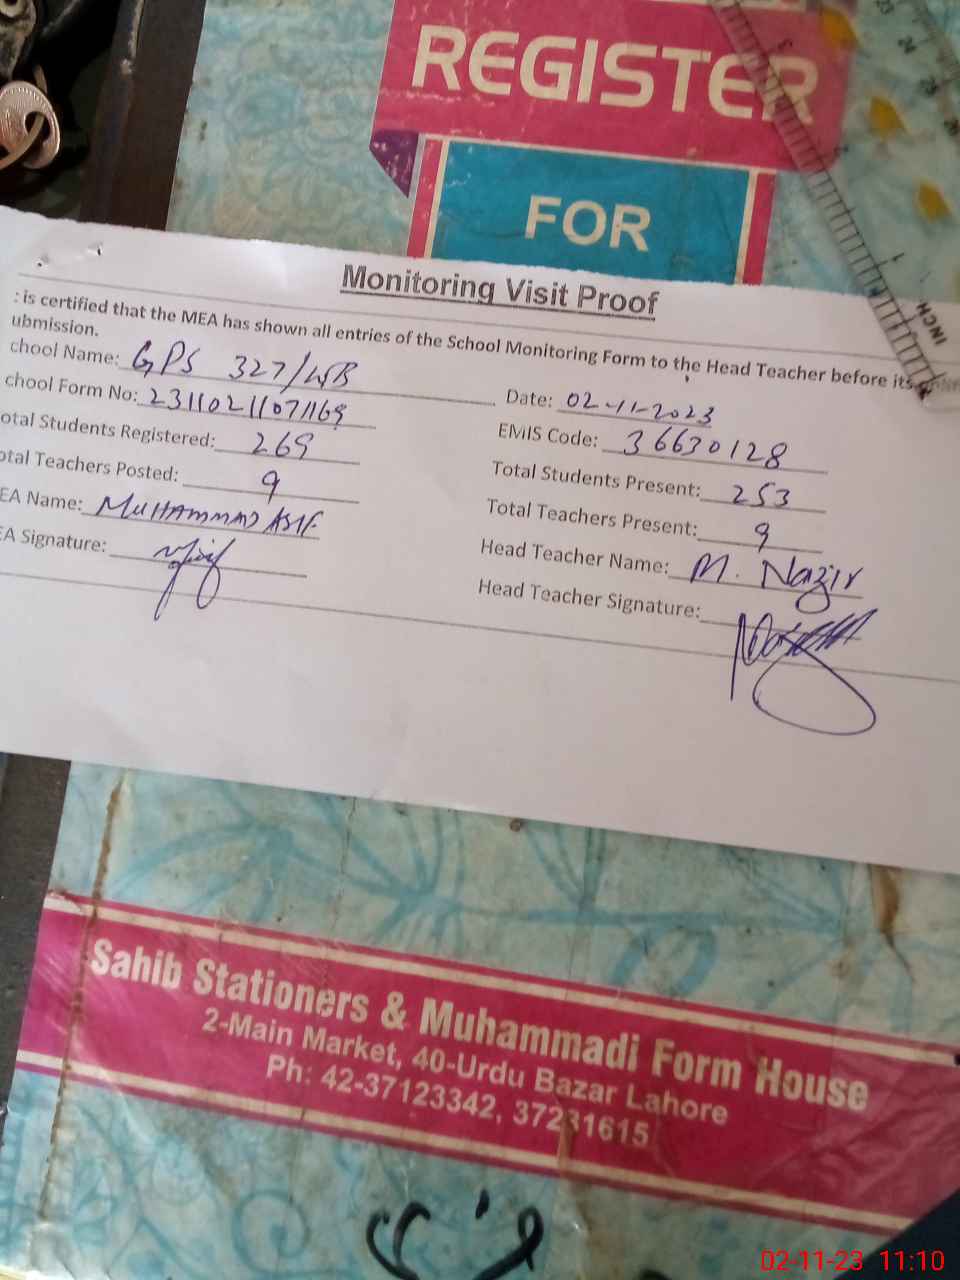 REGISTER
FOR
Monitoring Visit Proof
: is certified that the MEA has shown all entries of the School Monitoring Form to the Head Teacher before its
ubmission.
chool Name: GPS 327/WB
Date: 02-11-2023
chool Form No: 23110211071169
EMIS Code: 36630128
otal Students Registered: 269
Total Students Present: 253
otal Teachers Posted: 9
Total Teachers Present: 9
EA Name: MUHAMMAD ASIF
Head Teacher Name: M. Nazir
EA Signature:
Head Teacher Signature:
INCH
Sahib Stationers & Muhammadi Form House
2-Main Market, 40-Urdu Bazar Lahore
Ph: 42-37123342, 37231615
02-11-23 11:10